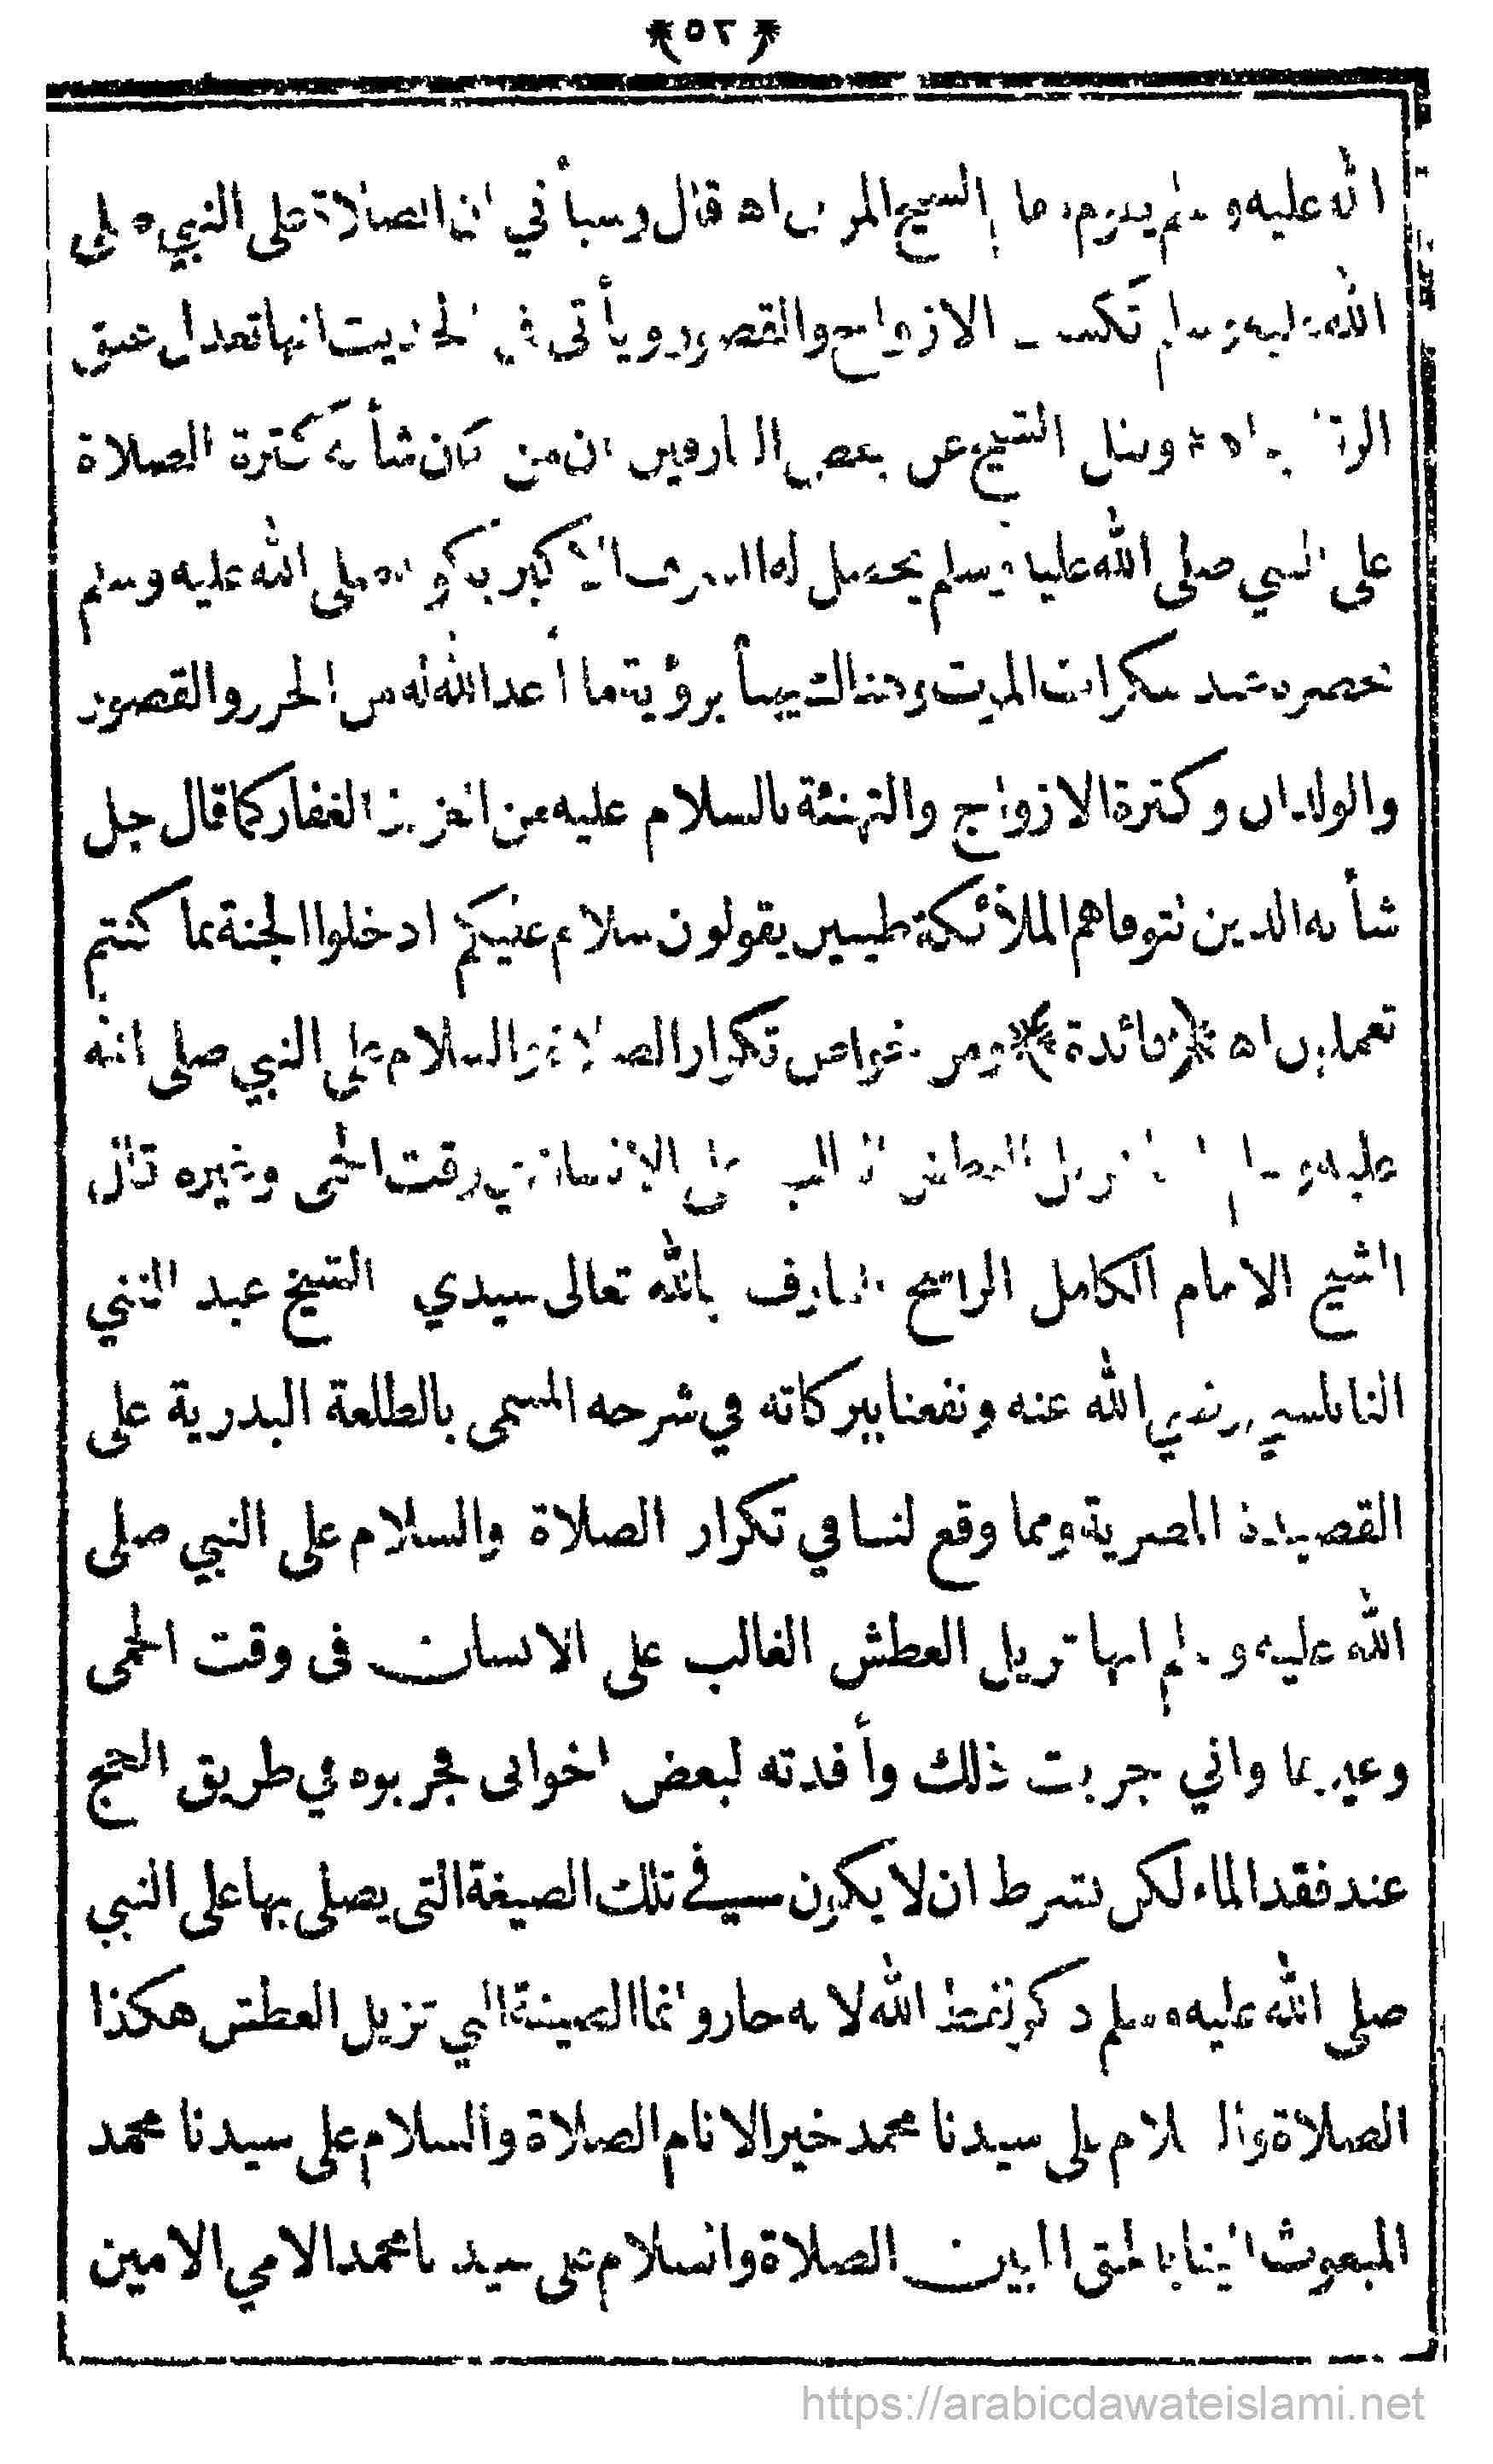 ﴿٥٢﴾
الله عليه وسلم قال وسيأتي ان الصلاة على النبي صلى
الله عليه وسلم تكسب الازواج والقصور ويأتي في الحديث انها تعدل عتق
اه ونقل الشيخ عن بعض العارفين ان من كان شأنه كثرة الصلاة
على النبي صلى الله عليه وسلم يحصل له الاكبر صلى الله عليه وسلم
يحضره عند سكرات الموت وهنالك برؤية ما أعد الله له من الحور والقصور
والولدان وكثرة الازواج والتهنئة بالسلام عليه من العزيز الغفار كما قال جل
شأنه الذين تتوفاهم الملائكة طيبين يقولون سلام عليكم ادخلوا الجنة بما كنتم
تعملون اه ﴿فائدة﴾ ومن خواص تكرار الصلاة والسلام على النبي صلى الله
عليه وسلم انها تزيل العطش الغالب على الانسان في وقت الحمى وغيره قال
الشيخ الامام الكامل الراسخ العارف بالله تعالى سيدي الشيخ عبد الغني
النابلسي رضي الله عنه ونفعنا ببركاته في شرحه المسمى بالطلعة البدرية على
القصيدة المضرية ومما وقع لنا في تكرار الصلاة والسلام على النبي صلى
الله عليه وسلم انها تزيل العطش الغالب على الانسان في وقت الحمى
وغيرها واني جربت ذلك وأفدته لبعض اخواني فجربوه في طريق الحج
عند فقد الماء لكن بشرط ان لا يكون في تلك الصيغة التي يصلي بها على النبي
صلى الله عليه وسلم ذكر لفظ الله لانه حار وانما الصيغة التي تزيل العطش هكذا
الصلاة والسلام على سيدنا محمد خير الانام الصلاة والسلام على سيدنا محمد
المبعوث الينا بالحق المبين الصلاة والسلام على سيدنا محمد الامي الامين
https://arabicdawateislami.net